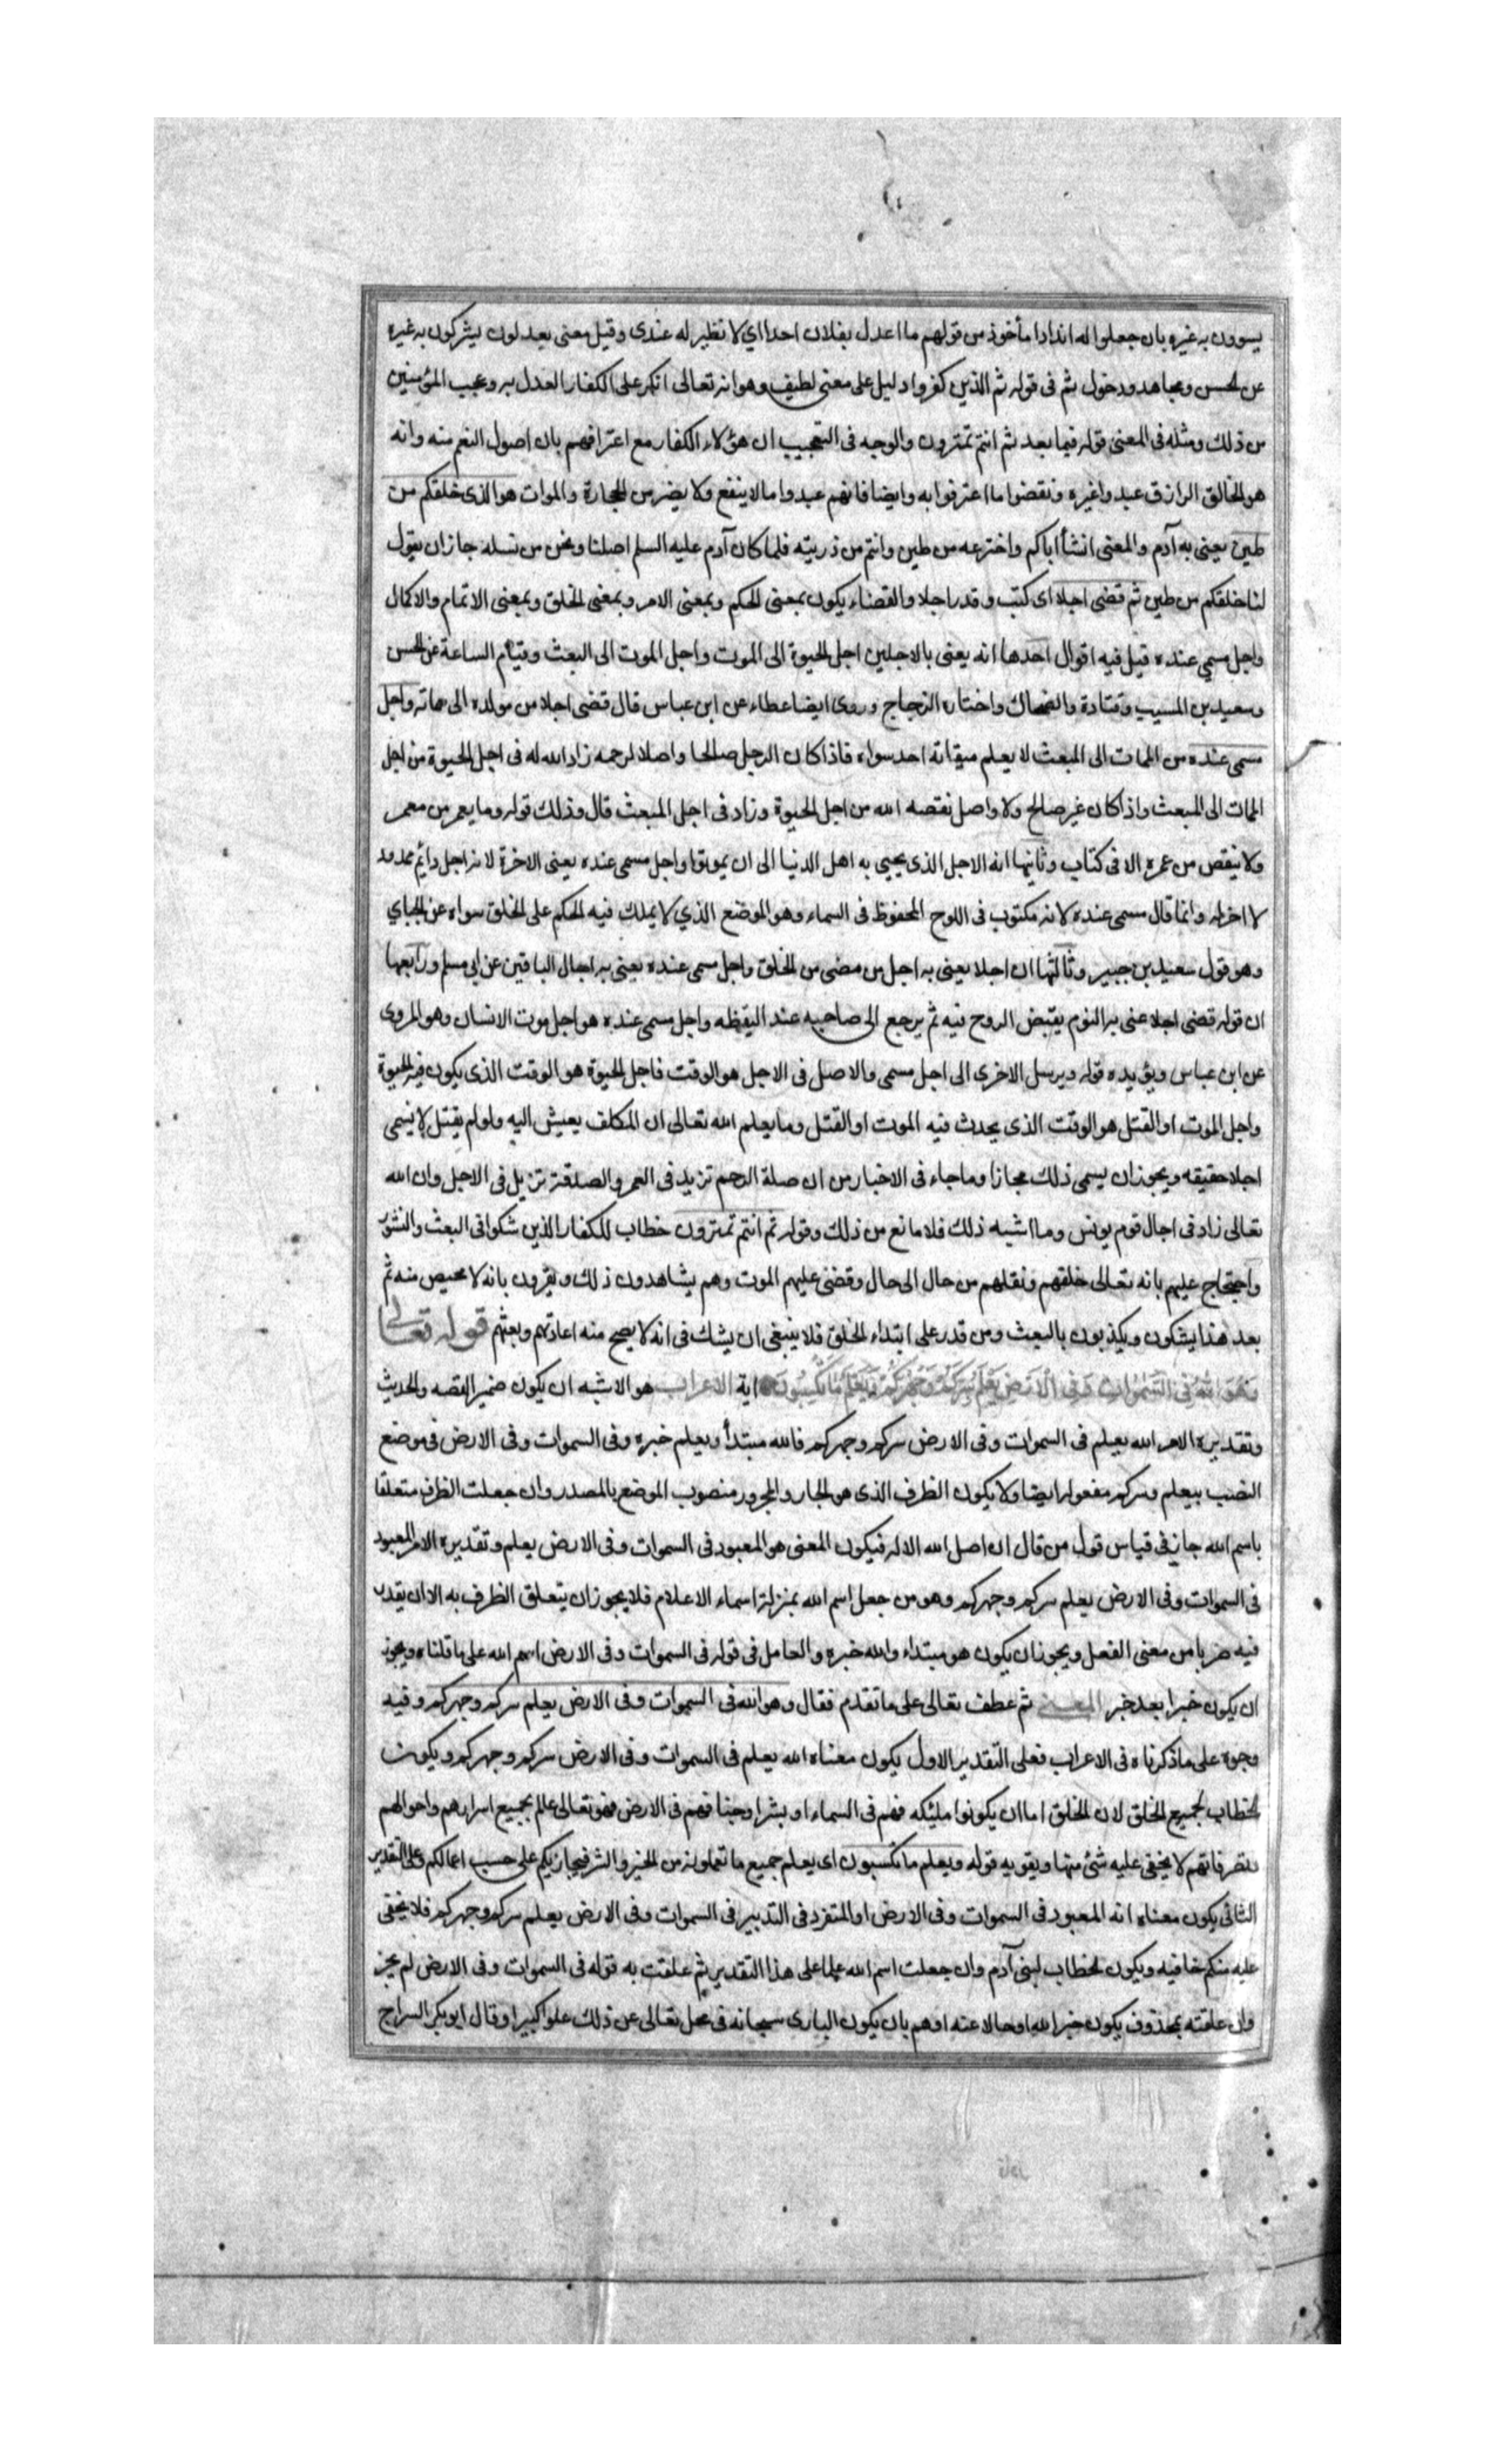 يسوون به غيره بان جعلوا له اندادا مأخوذ من قولهم ما اعدل بفلان احدا اي لا نظير له عندى وقيل معنى يعدلون يشركون به غيره
عن الحسن ومجاهد ودخول ثم فى قوله ثم الذين كفروا دليل على معنى لطيف وهو انه تعالى انكر على الكفار العدل به وعجب المؤمنين
من ذلك ومثله فى المعنى قوله فيما بعد ثم انتم تمترون والوجه فى التعجيب ان هؤلاء الكفار مع اعترافهم بان اصول النعم منه وانه
هو الخالق الرازق عبدوا غيره ونقضوا ما اعترفوا به وايضا فانهم عبدوا ما لا ينفع ولا يضر من الحجارة والموات هو الذى خلقكم من
طين يعنى به آدم والمعنى انشأ اباكم واخترعه من طين وانتم من ذريته فلما كان آدم عليه السلم اصلنا ونحن من نسله جاز ان يقول
لنا خلقكم من طين ثم قضى اجلا اى كتب وقدر اجلا والقضاء يكون بمعنى الحكم وبمعنى الامر وبمعنى الخلق وبمعنى الاتمام والاكمال
واجل مسمى عنده قيل فيه اقوال احدها انه يعنى بالاجلين اجل الحيوة الى الموت واجل الموت الى البعث وقيام الساعة عن الحسن
وسعيد بن المسيب وقتادة والضحاك واختاره الزجاج وروى ايضا عطاء عن ابن عباس قال قضى اجلا من مولده الى مماته واجل
مسمى عنده من الممات الى المبعث لا يعلم ميقاته احد سواه فاذا كان الرجل صالحا واصلا لرحمه زاد الله له فى اجل الحيوة من اجل
الممات الى المبعث واذا كان غير صالح ولا واصل نقصه الله من اجل الحيوة وزاد فى اجل المبعث قال وذلك قوله وما يعمر من معمر
ولا ينقص من عمره الا فى كتاب وثانيها انه الاجل الذى يحيى به اهل الدنيا الى ان يموتوا واجل مسمى عنده يعنى الاخرة لانه اجل دائم ممدود
لا اخر له وانما قال مسمى عنده لانه مكتوب فى اللوح المحفوظ فى السماء وهو الموضع الذي لا يملك فيه الحكم على الخلق سواه عن الجباي
وهو قول سعيد بن جبير وثالثها ان اجلا يعنى به اجل من مضى من الخلق واجل مسمى عنده يعنى به اجال الباقين عن ابي مسلم ورابعها
ان قوله قضى اجلا عنى به النوم يقبض الروح فيه ثم يرجع الى صاحبه عند اليقظه واجل مسمى عنده هو اجل موت الانسان وهو المروى
عن ابن عباس ويؤيده قوله ويرسل الاخرى الى اجل مسمى والاصل فى الاجل هو الوقت فاجل الحيوة هو الوقت الذى يكون فيه الحيوة
واجل الموت او القتل هو الوقت الذى يحدث فيه الموت او القتل وما يعلم الله تعالى ان المكلف يعيش اليه ولو لم يقتل لا يسمى
اجلا حقيقه ويجوز ان يسمى ذلك مجازا وما جاء فى الاخبار من ان صلة الرحم تزيد فى العمر والصدقة تزيد فى الاجل وان الله
تعالى زاد فى اجال قوم يونس وما اشبه ذلك فلا مانع من ذلك وقوله ثم انتم تمترون خطاب للكفار الذين شكوا فى البعث والنشور
واحتجاج عليهم بانه تعالى خلقهم ونقلهم من حال الى حال وقضى عليهم الموت وهم يشاهدون ذلك ويقرون بانه لا محيص منه ثم
بعد هذا يشكون ويكذبون بالبعث ومن قدر على ابتداء الخلق فلا ينبغى ان يشك فى انه لا يصح منه اعادتهم وبعثهم قوله تعالى
وَهُوَ اللهُ فِى السَّمٰوَاتِ وَفِى الْاَرْضِ يَعْلَمُ سِرَّكُمْ وَجَهْرَكُمْ وَيَعْلَمُ مَا تَكْسِبُونَ اية الاعراب هو الاشبه ان يكون ضمير القصه والحديث
وتقديره الامر الله يعلم فى السموات وفى الارض سركم وجهركم فالله مبتدأ ويعلم خبره وفى السموات وفى الارض فى موضع
النصب بيعلم وسركم مفعوله ايضا ولا يكون الظرف الذى هو الجار والمجرور منصوب الموضع بالمصدر وان جعلت الظرف متعلقا
باسم الله جاز فى قياس قول من قال ان اصل الله الاله فيكون المعنى هو المعبود فى السموات وفى الارض يعلم وتقديره الامر المعبود
فى السموات وفى الارض يعلم سركم وجهركم وهو من جعل اسم الله بمنزلة اسماء الاعلام فلا يجوز ان يتعلق الظرف به الا ان يقدر
فيه ضربا من معنى الفعل ويجوز ان يكون هو مبتداء والله خبره والعامل فى قوله فى السموات وفى الارض اسم الله على ما قلناه ويجوز
ان يكون خبرا بعد خبر المعنى ثم عطف تعالى على ما تقدم فقال وهو الله فى السموات وفى الارض يعلم سركم وجهركم وفيه
وجوه على ما ذكرناه فى الاعراب فعلى التقدير الاول يكون معناه الله يعلم فى السموات وفى الارض سركم وجهركم ويكون
الخطاب لجميع الخلق لان الخلق اما ان يكونوا ملئيكه فهم فى السماء او بشرا وجنا فهم فى الارض فهو تعالى عالم بجميع اسرارهم واحوالهم
وتصرفاتهم لا يخفى عليه شئ منها ويقويه قوله ويعلم ما تكسبون اى يعلم جميع ما تعملونه من الخير والشر فيجازيكم على حسب اعمالكم وعلى التقدير
الثانى يكون معناه انه المعبود فى السموات وفى الارض او المتفرد فى التدبير فى السموات وفى الارض يعلم سركم وجهركم فلا يخفى
عليه منكم خافيه ويكون الخطاب لبنى آدم وان جعلت اسم الله علما على هذا التقدير ثم علقت به قوله فى السموات وفى الارض لم يجز
وان علقته بمحذوف يكون خبر الله او حالا عنه اوهم بان يكون البارى سبحانه فى محل تعالى عن ذلك علوا كبيرا وقال ابو بكر السراج